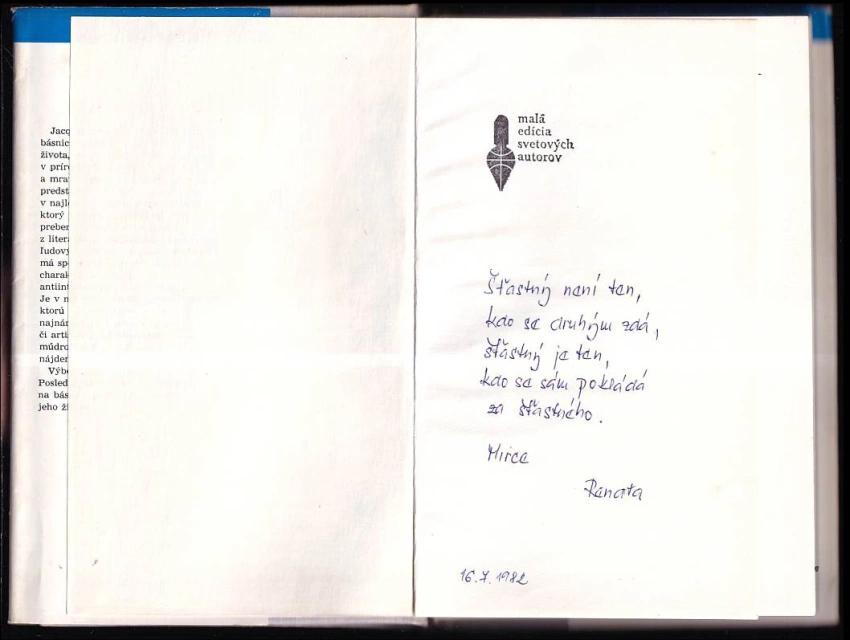 Jacq
básnic
života,
v príro
a mra
predst
v najl
ktorý
preber
z liter
ľudový
má sp
charak
antiint
Je v n
ktorú
najnár
či arti
múdro
nájden
Výbo
Posled
na bás
jeho ži
malá
edícia
svetových
autorov
Šťastný není ten,
kdo se druhým zdá,
šťastný je ten,
kdo se sám pokládá
za šťastného.
Mirce
Renata
16.7.1982